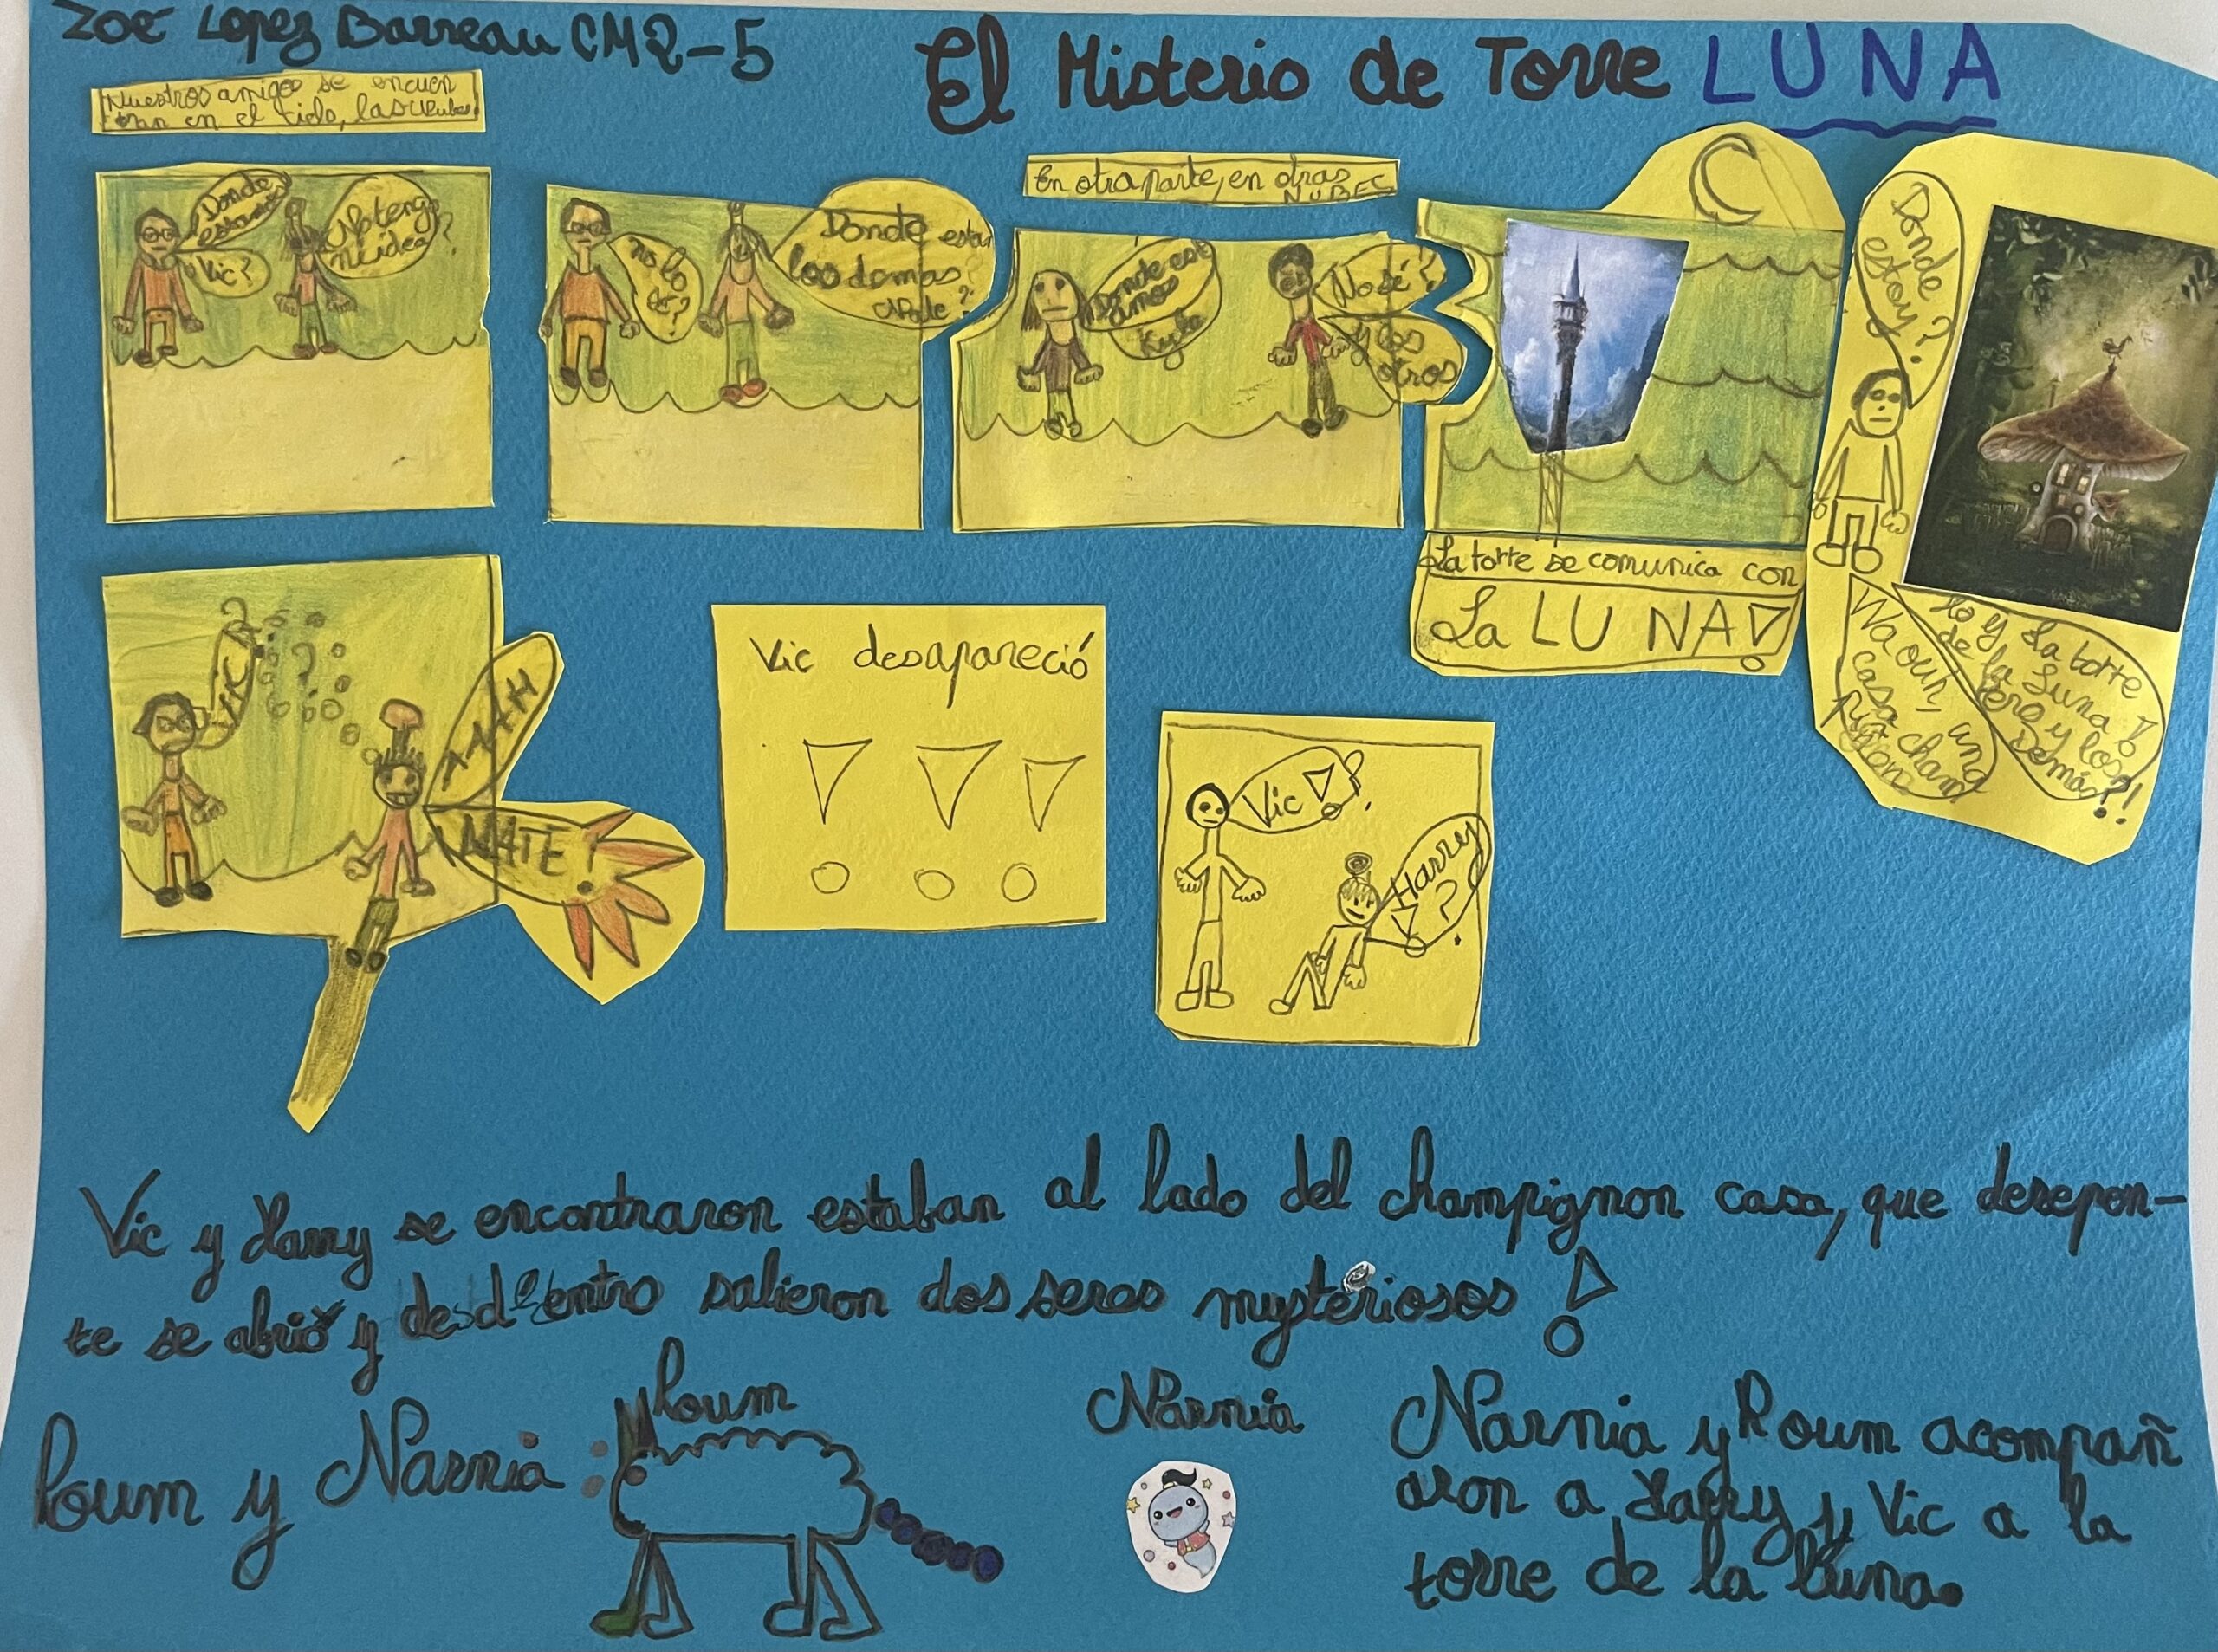 Zoé Lopez Barreau CM2-5
El Misterio de Torre LUNA
Nuestros amigos se encuen
tran en el cielo, las nubes!
Donde
estamos
Vic?
No tengo
ni idea?
no lo
se?
Donde estan
los demas
Mate?
En otra parte, en otras
NUBES
Donde est
amos
Kyla
No sé?
y los
otros
La torre se comunica con
La LUNA!
Donde
estoy?
Waouh, una
casa cham
pignon
Yo y la torre
de la Luna!
Pero y los
Demás?!
VIC?
?
AAAH
MATE!
Vic desapareció
! ! !
Vic!?
Harry
!?
Vic y Harry se encontraron estaban al lado del champignon casa, que derepen-
te se abrió y desde dentro salieron dos seres mysteriosos!
Poum y Narnia:
Poum
Narnia
Narnia y Poum acompañ
aron a Harry y Vic a la
torre de la luna.